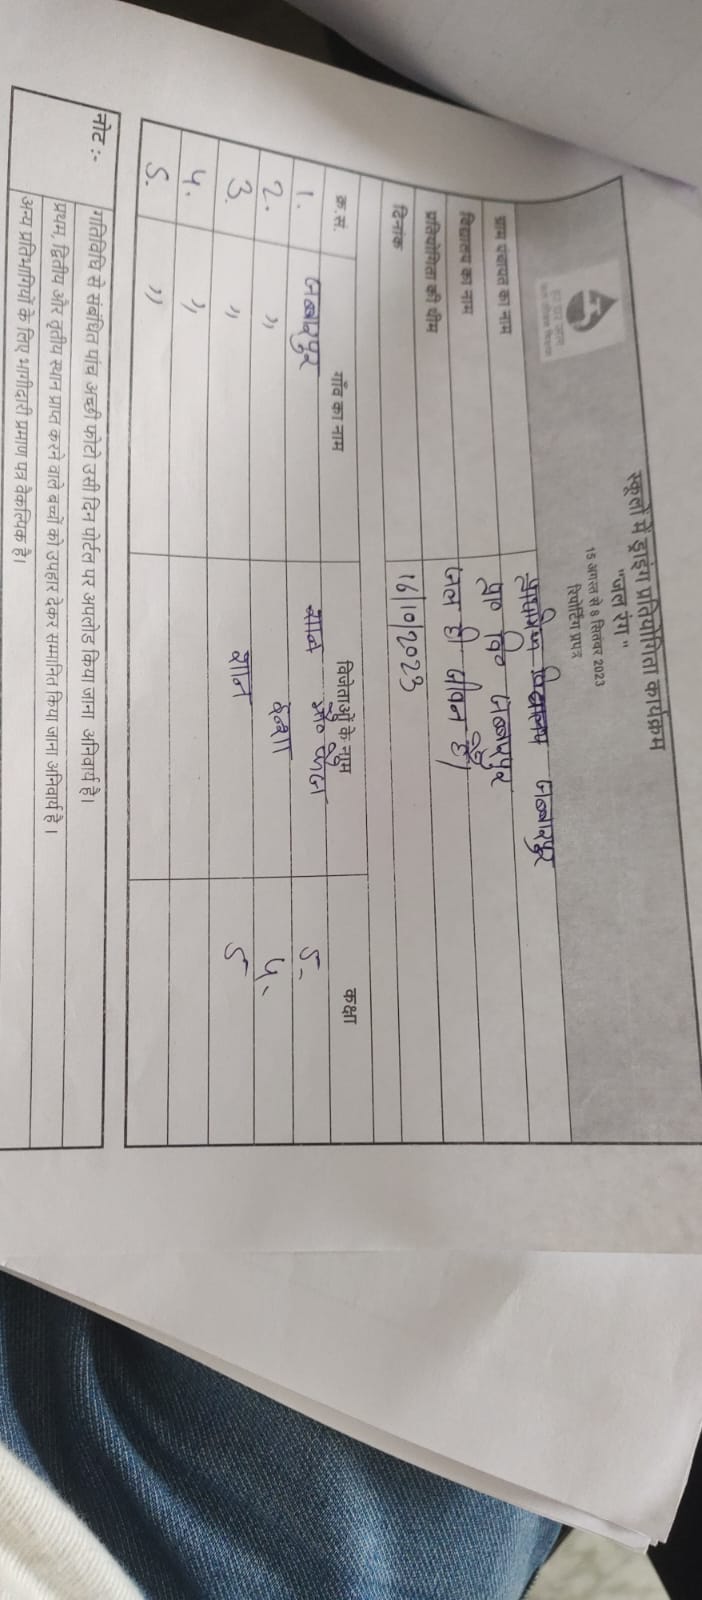 हर घर जल
जल जीवन मिशन
स्कूलों में ड्राइंग प्रतियोगिता कार्यक्रम
"जल रंग"
15 अगस्त से 8 सितम्बर 2023
रिपोर्टिंग प्रपत्र
ग्राम पंचायत का नाम प्राथमिक विद्यालय
विद्यालय का नाम प्रा० वि०
प्रतियोगिता की थीम जल ही जीवन है।
दिनांक 16/10/2023
क्र.सं. गाँव का नाम विजेताओं के नाम कक्षा
1. 5-
2. " 4.
3. " 5
4. "
5. "
नोट:- गतिविधि से संबंधित पांच अच्छी फोटो उसी दिन पोर्टल पर अपलोड किया जाना अनिवार्य है।
प्रथम, द्वितीय और तृतीय स्थान प्राप्त करने वाले बच्चों को उपहार देकर सम्मानित किया जाना अनिवार्य है।
अन्य प्रतिभागियों के लिए भागीदारी प्रमाण पत्र वैकल्पिक है।